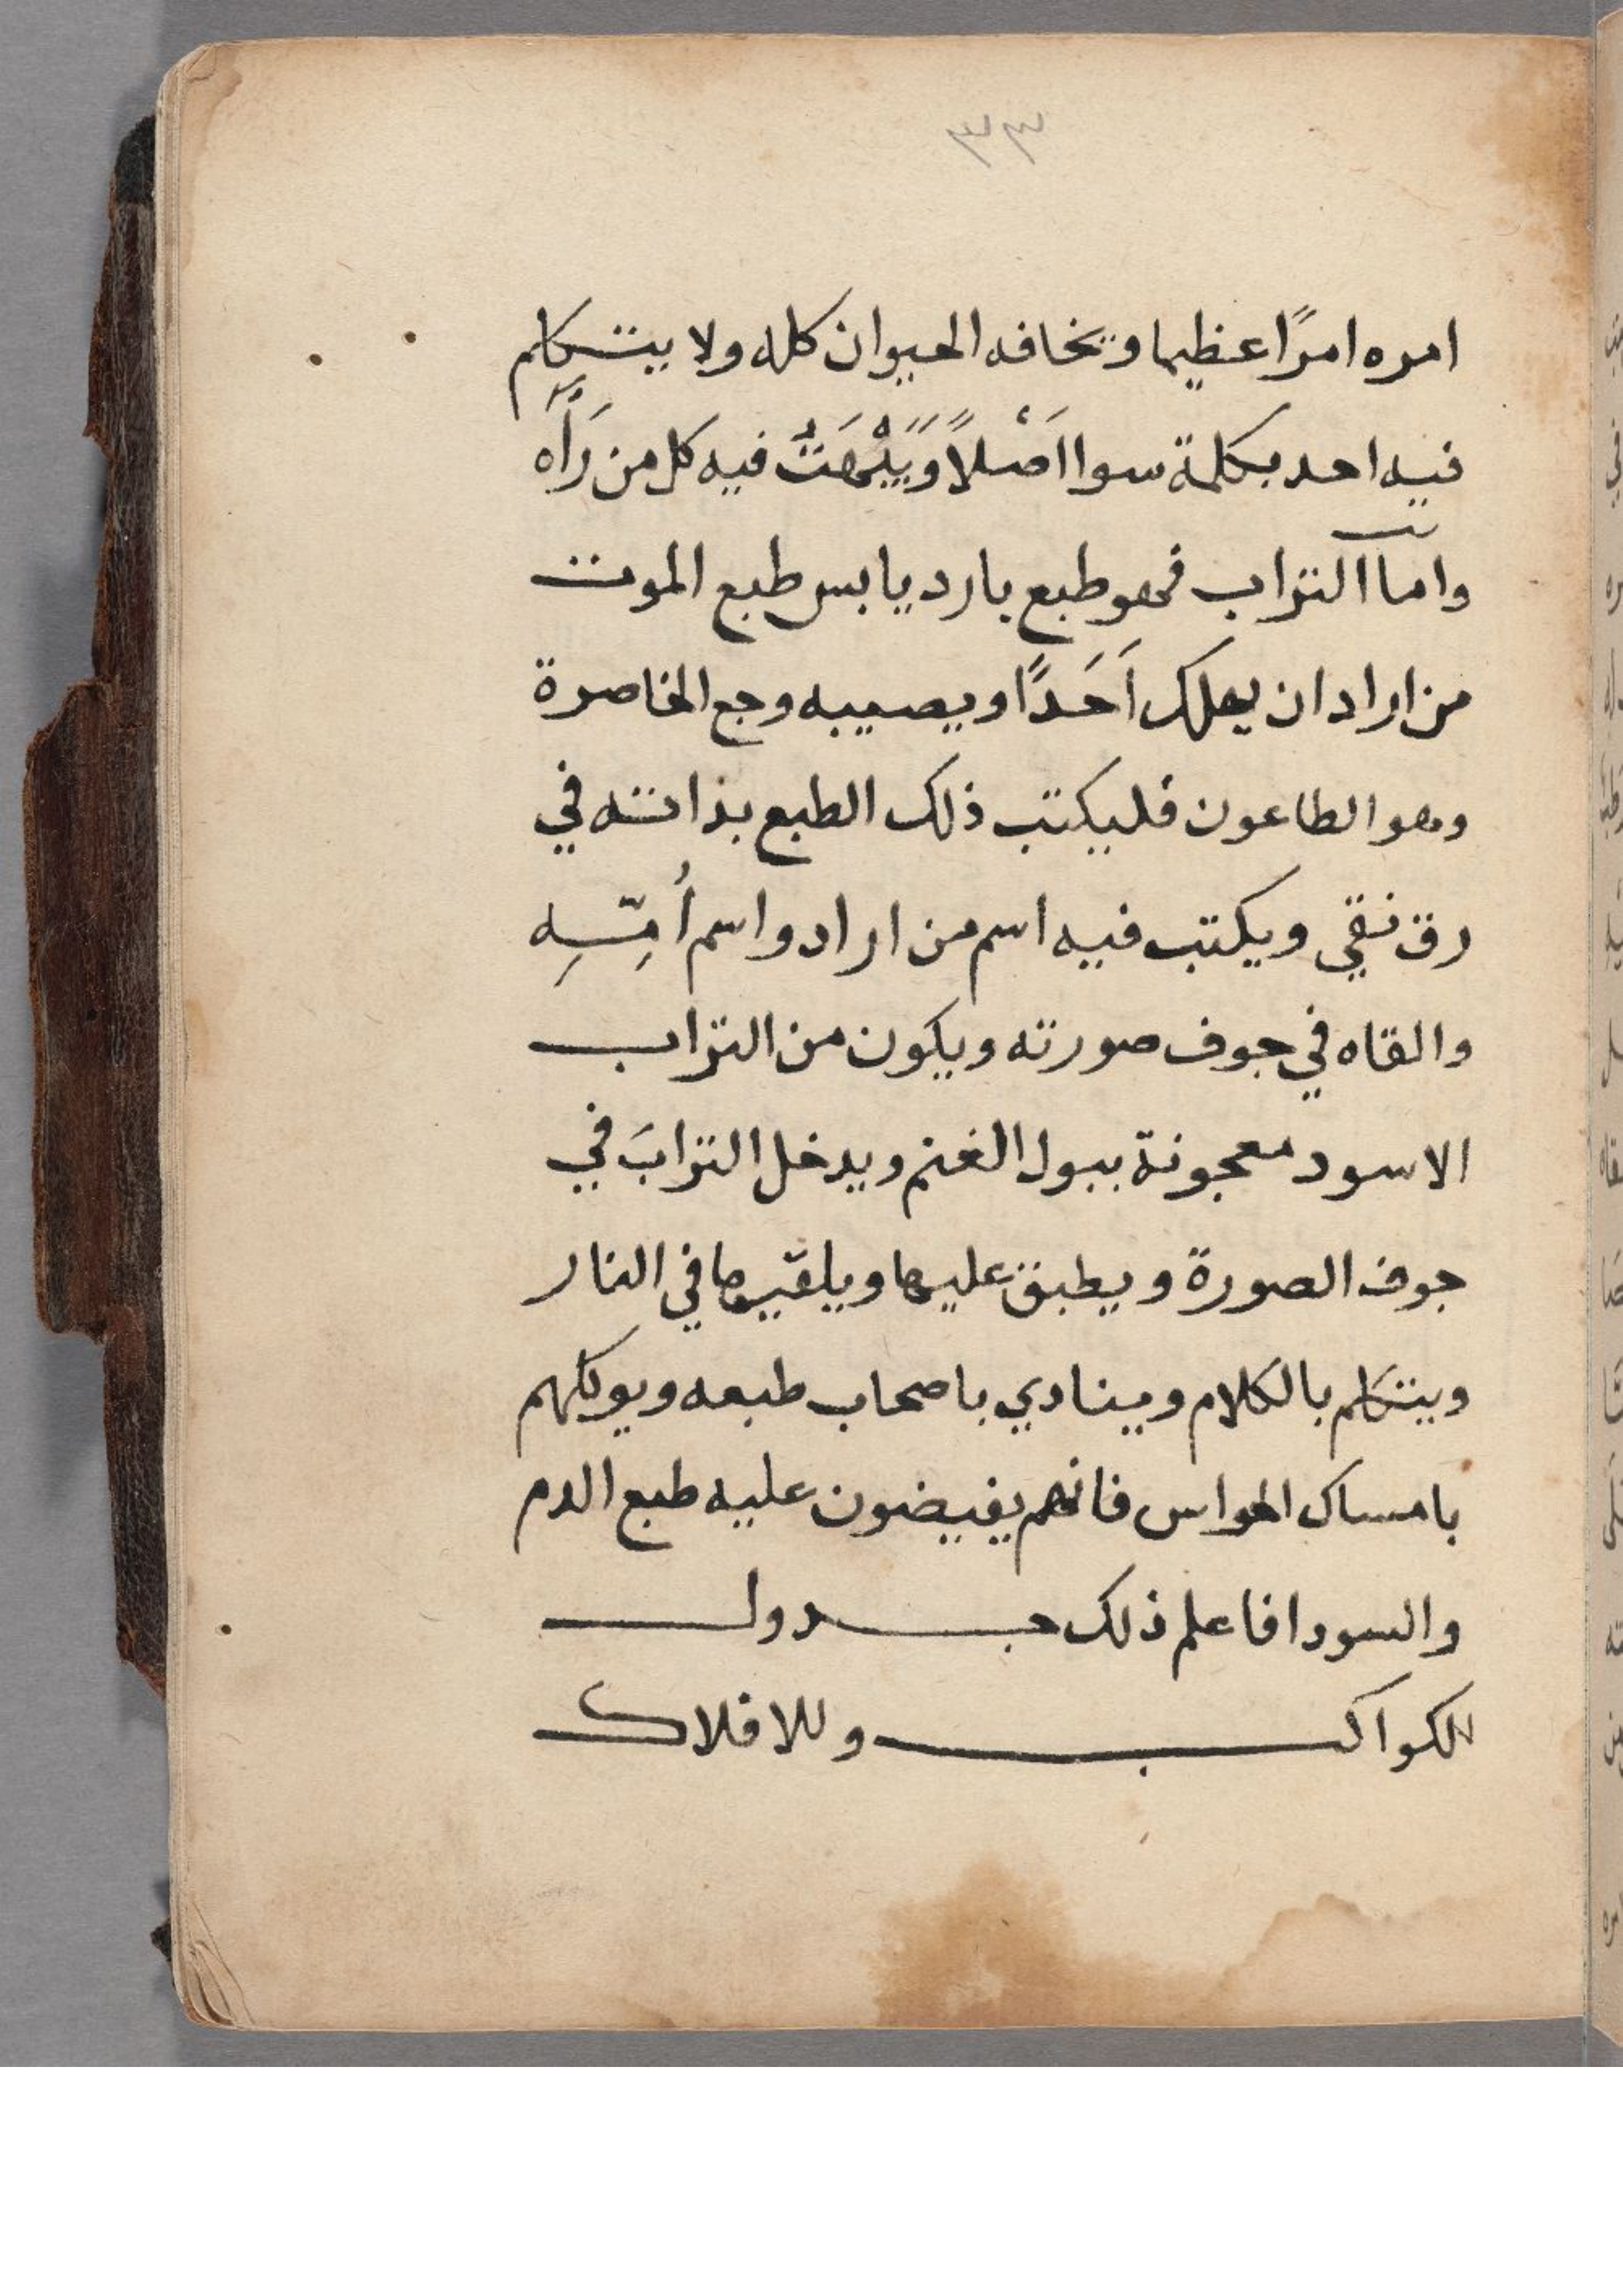 ٣٣
امره امرًا عظيما ويخافه الحيوان كله ولا يتكلم
فيه احد بكلمة سوا اَصْلاً وَيَبْهَتُ فيه كل من رَآَه
وامآ التراب فهو طبع بارد يابس طبع الموت
من اراد ان يهلك اَحَدًا ويصيبه وجع الخاصرة
وهو الطاعون فليكتب ذلك الطبع بذاته في
رق نقي ويكتب فيه اسم من اراد واسم أُمِّهِ
والقاه في جوف صورته ويكون من التراب
الاسود معجونة ببول الغنم ويدخل الترابَ في
جوف الصورة ويطبق عليها ويلقيها في النار
ويتكلم بالكلام وينادي باصحاب طبعه ويوكلهم
بامساك الحواس فانهم يفيضون عليه طبع الدم
والسودا فاعلم ذلك جدول
للكواكب وللافلاك